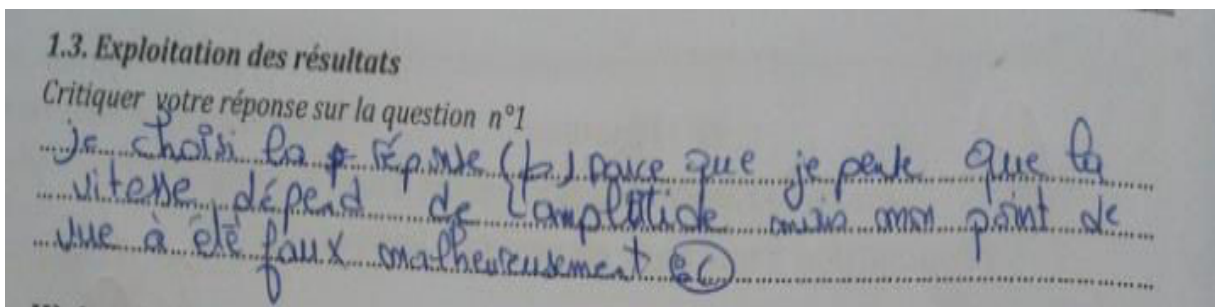 1.3. Exploitation des résultats
Critiquer votre réponse sur la question n°1
je choisi la réponse (b) parce que je pense que la
vitesse dépend de l'amplitide mais mon point de
vue à été faux malheureusement